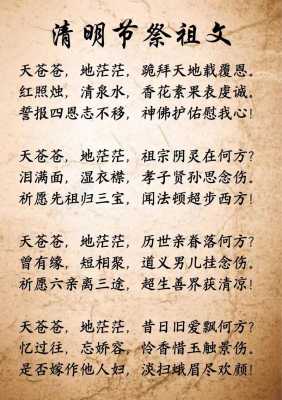 清明节祭祖文
天苍苍，地茫茫，跪拜天地载覆恩。
红照烛，清泉水，香花素果表虔诚。
誓报四恩志不移，神佛护佑慰我心！
天苍苍，地茫茫，祖宗阴灵在何方？
泪满面，湿衣襟，孝子贤孙思念伤。
祈愿先祖归三宝，闻法顿超步西方！
天苍苍，地茫茫，历世亲眷落何方？
曾有缘，短相聚，道义男儿挂念伤。
祈愿六亲离三途，超生善界获清凉！
天苍苍，地茫茫，昔日旧爱飘何方？
忆过往，忘娇容，怜香惜玉触景伤。
是否嫁作他人妇，淡扫蛾眉尽欢颜！